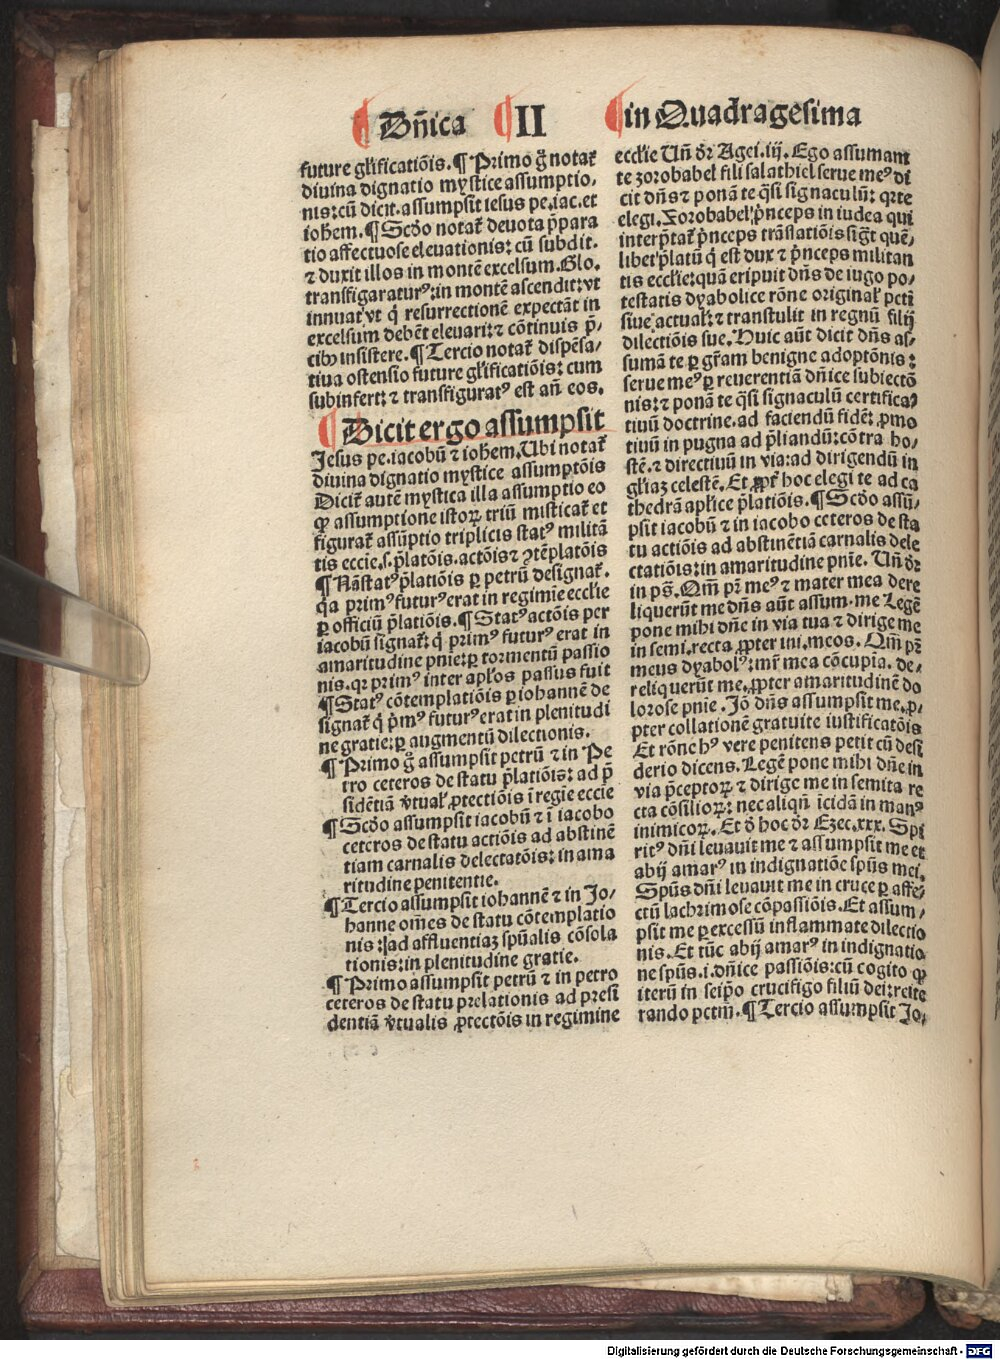 ¶ Dn̄ica ¶ II ¶ in Quadragesima
future gl̓ificatiōis. ¶ Primo g̊ notat̉
diuina dignatio mystice assumptio,
nis: cū dicit. assumpsit iesus pe. iac. et
ioh̄em. ¶ Scd̓o notat̉ deuota p̄para
tio affectuose eleuationis: cū subdit.
⁊ duxit illos in montē excelsum. Glo.
transfiguraturꝰ: in montē ascendit: vt
innuat vt q̇ resurrectionē expectāt in
excelsum debēt eleuari: ⁊ cōtinuis p̄-
cibꝰ insistere. ¶ Tercio notat̉ dispēsa-
tiua ostensio future gl̓ificatiōis: cum
subinfert: ⁊ transfiguratꝰ est an̄ eos.
¶ Dicit ergo assumpsit
Jesus pe. iacobū ⁊ ioh̄em. Ubi notat̉
diuina dignatio mystice assumptōis
Dicit̉ autē mystica illa assumptio eo
ꝙ assumptione istoꝝ triū misticat̉ et
figurat̉ assūptio triplicis statꝰ militā
tis eccie. s. p̄latōis. actōis ⁊ ꝯtēplatōis
¶ Nā statꝰ p̄latiōis ꝑ petrū designat̉.
q̇a primꝰ futurꝰ erat in regimīe eccl̓ie
ꝑ officiū p̄latiōis. ¶ Statꝰ actōis per
iacobū signat̉: q̇ primꝰ futurꝰ erat in
amaritudine pn̄ie: ꝑ tormentū passio
nis. qꝛ primꝰ inter apl̓os passus fuit
¶ Statꝰ cōtemplatiōis ꝑ iohannē de
signat̉ q̇ p̓mꝰ futurꝰ erat in plenitudi
ne gratie: ꝑ augmentū dilectionis.
¶ Primo g̊ assumpsit petrū ⁊ in Pe
tro ceteros de statu p̄latiōis: ad p̄
sidētiā v̓tual̓ ꝓtectiōis ī regīe eccie
¶ Scd̓o assumpsit iacobū ⁊ ī iacobo
ceteros de statu actiōis ad abstinē
tiam carnalis delectatōis: in ama
ritudine penitentie.
¶ Tercio assumpsit iohannē ⁊ in Jo-
hanne om̄es de statu cōtemplatio
nis: ad affluentiaꝫ spūalis cōsola
tionis: in plenitudine gratie.
¶ Primo assumpsit petrū ⁊ in petro
ceteros de statu prelationis ad presi
dentiā v̓tualis ꝓtectōis in regimine
eccl̓ie Un̄ d̓r Agei. iij. Ego assumam
te zorobabel fili salathiel serue meꝰ di
cit dn̄s ⁊ ponā te q̓si signaculū: qꝛ te
elegi. Zorobabel p̓nceps in iudea qui
interp̄tat̉ p̓nceps trāslatiōis sig̓t quē-
libet p̄latū q̇ est dux ⁊ p̓nceps militan
tis eccl̓ie: quā eripuit dn̄s de iugo po-
testatis dyabolice rōne original̓ pctī
siue actual̓: ⁊ transtulit in regnū filij
dilectiōis sue. Huic aūt dicit dn̄s as-
sumā te ꝑ gr̄am benigne adoptōnis:
serue meꝰ ꝑ reuerentiā dn̄ice subiectō
nis: ⁊ ponā te q̓si signaculū certifica-
tiuū doctrine. ad faciendū fidē: ꝓmo
tiuū in pugna ad p̄liandū: cōtra ho-
stē. ⁊ directiuū in via: ad dirigendū in
gl̓iaꝫ celestē. Et ꝓpt̉ hoc elegi te ad ca
thedrā apl̓ice p̄latiōis. ¶ Scd̓o assū-
psit iacobū ⁊ in iacobo ceteros de sta
tu actiōis ad abstinētiā carnalis dele
ctatiōis: in amaritudine pn̄ie. Un̄ d̓r
in ps̄. Qm̄ pr̄ meꝰ ⁊ mater mea dere
liquerūt me dn̄s aūt assum. me Legē
pone mihi dn̄e in via tua ⁊ dirige me
in semi. recta ꝓpter ini. meos. Qm̄ pr̄
meus dyabolꝰ: mr̄ mea cōcupīa. de-
reliquerūt me. ꝓpter amaritudinē do
lorose pn̄ie. Jō dn̄s assumpsit me. ꝓ-
pter collationē gratuite iustificatōis
Et rōne hꝰ vere penitens petit cū desi
derio dicens. Legē pone mihi dn̄e in
via p̄ceptoꝝ ⁊ dirige me in semita re
cta cōsilioꝝ: nec aliqn̄ īcidā in manꝰ
inimicoꝝ. Et d̓ hoc d̓r Ezec. xxx. Spi
ritꝰ dn̄i leuauit me ⁊ assumpsit me et
abij amarꝰ in indignatiōe spūs mei.
Spūs dn̄i leuauit me in cruce ꝑ affe-
ctū lachrimose cōpassiōis. Et assum-
psit me ꝑ excessū inflammate dilectio
nis. Et tūc abij amarꝰ in indignatio
ne spūs. i. dn̄ice passiōis: cū cogito ꝙ
iterū in seip̄o crucifigo filiū dei: reite
rando pctm̄. ¶ Tercio assumpsit Jo-
Digitalisierung gefördert durch die Deutsche Forschungsgemeinschaft - DFG